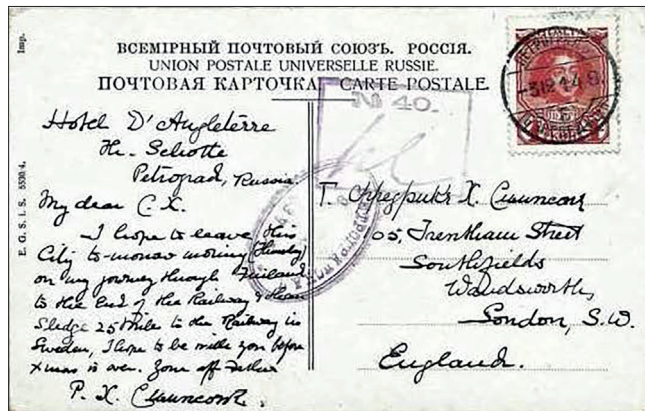 ВСЕМІРНЫЙ ПОЧТОВЫЙ СОЮЗЪ. РОССІЯ.
UNION POSTALE UNIVERSELLE RUSSIE.
ПОЧТОВАЯ КАРТОЧКА. CARTE POSTALE.
Imp.
E. G. S. I. S. 5530/4.
№ 40.
3 12 14
Hotel D'Angleterre
Petrograd, Russia.
My dear C. X.
I hope to leave this
City to-morrow morning
on my journey through Finland
to the End of the Railway & then
Sledge 25 Mile to the Railway in
Sweden, I hope to be with you before
Xmas is over. Your aff Father
P. X.
Г. Фредрикъ Х.
105, Trentham Street
Southfields
Wandsworth,
London, S.W.
England.